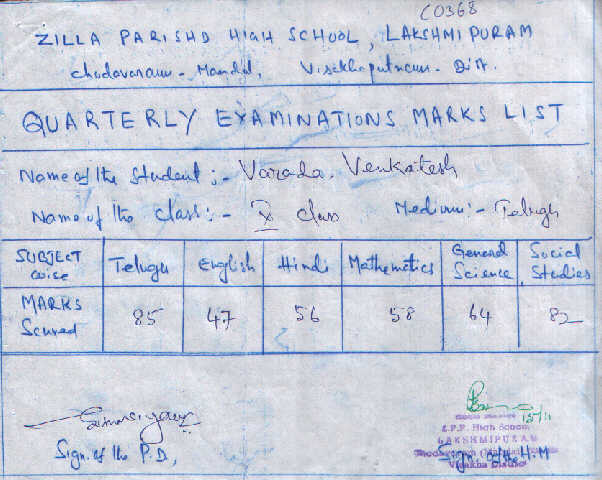 C0368
ZILLA PARISHD HIGH SCHOOL, LAKSHMIPURAM
Chodavaram - Mandal, Visakhapatnam - Dist.
QUARTERLY EXAMINATIONS MARKS LIST
Name of the Student :- Varada. Venkatesh
Name of the Class :- X class Medium :- Telugu
SUBJECT wise Telugu English Hindi Mathematics General Science Social Studies
MARKS Scured 85 47 56 58 64 82
15/11
Z.P.P. High School
LAKSHMIPURAM
Visakha District
Sign. of the P.D, Sign. of the H.M